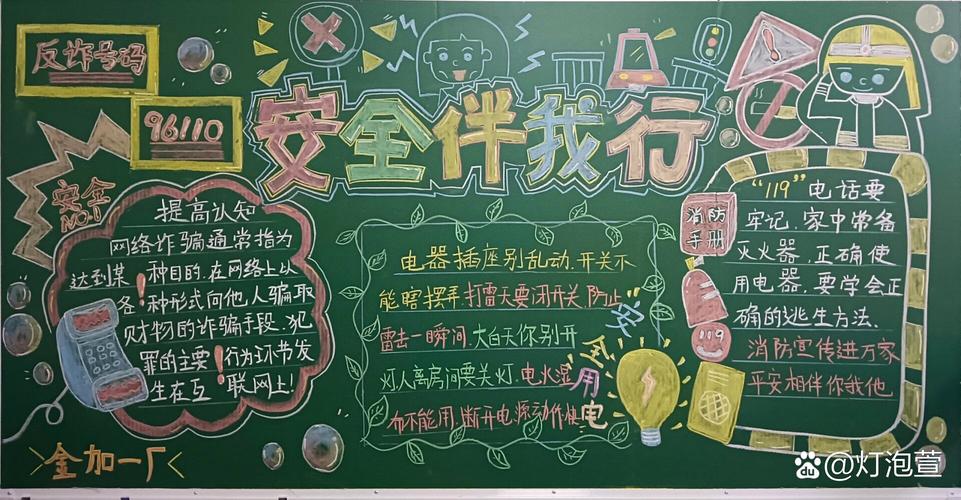 反诈号码
96110
安全伴我行
安全
NO.1
提高认知
网络诈骗通常指为
达到某!种目的.在网络上以
各!种形式向他人骗取
财物的诈骗手段.犯
罪的主要!行为环节发
生在互!联网上!
金加一厂
电器插座别乱动.开关不
能瞎摆弄.打雷天要闭开关.防止
雷击一瞬间.大白天你别开
灯人离房间要关灯.电火湿
布不能用.断开电源动作快
安全用电
消防
手册
119
"119"电话要
牢记.家中常备
灭火器.正确使
用电器.要学会正
确的逃生方法.
消防宣传进万家
平安相伴你我他
Bai du @灯泡萱